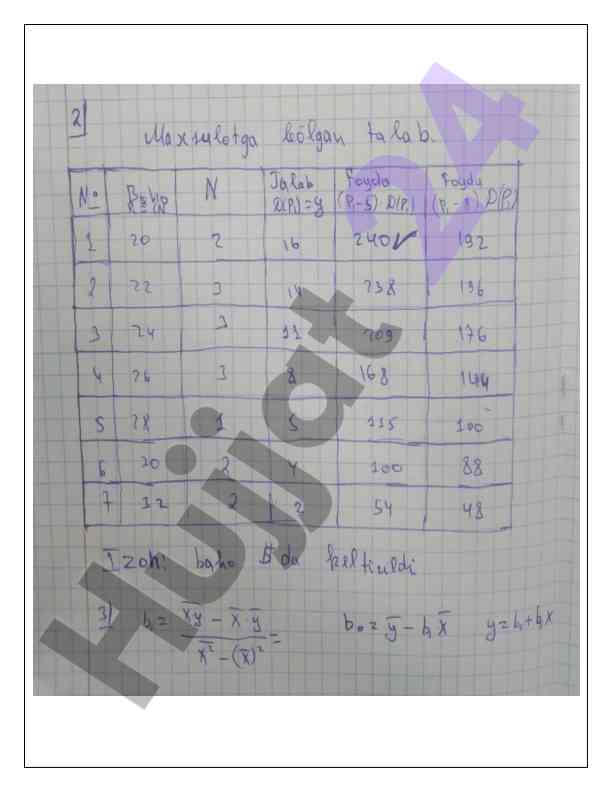 2)
Maxsulotga bólgan talab.
№ N Talab D(Pᵢ)=y Foyda (Pᵢ-5)·D(Pᵢ) Foyda (Pᵢ-8)·D(Pᵢ)
1 20 2 16 240✓ 192
2 22 3 14 238 196
3 24 3 11 209 176
4 26 3 8 168 144
5 28 1 5 115 100
6 30 2 4 100 88
7 32 2 2 54 48
Izoh: baho $ da keltirildi
3) b₁ = (x̄y̅ - x̄·ȳ) / (x̄² - (x̄)²) = b₀ = ȳ - b₁x̄ y = b₀ + b₁x
Hujjat 24